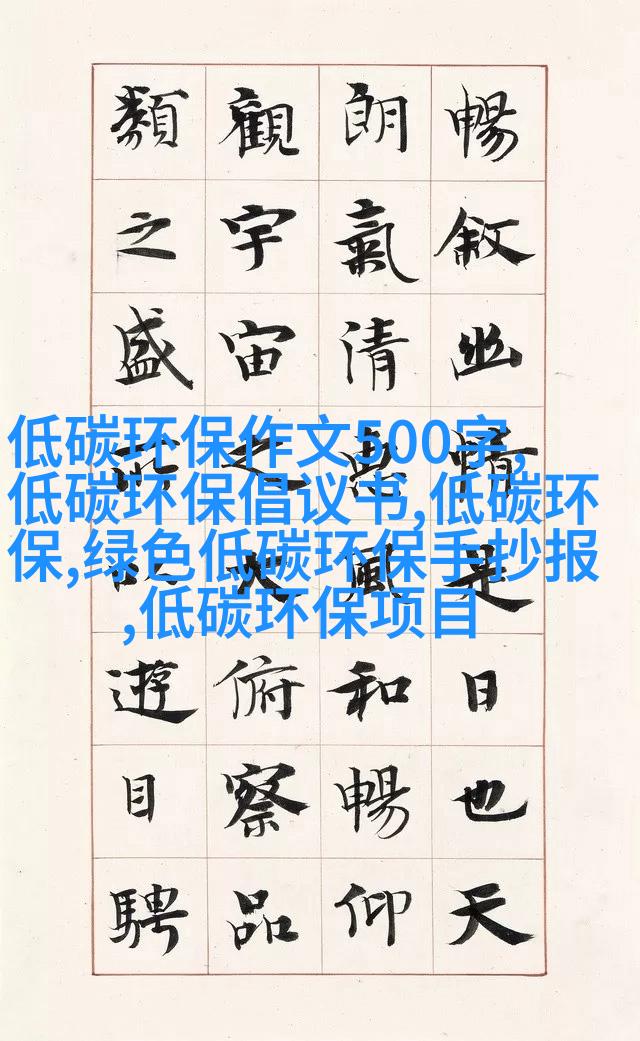 暢敘幽情是日也天
朗氣清惠風和暢仰
觀宇宙之大俯察品
類之盛所以遊目騁
低碳环保作文500字,
低碳环保倡议书,低碳环
保,绿色低碳环保手抄报
,低碳环保项目